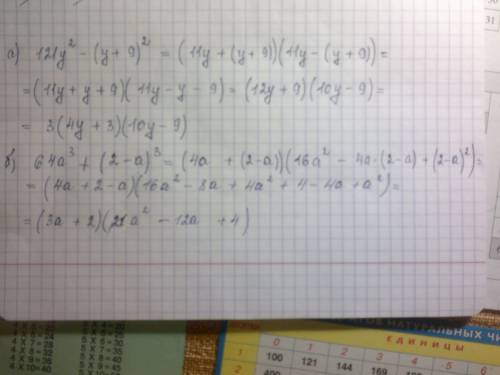 а) 121y² − (y + 9)² = (11y + (y + 9))(11y − (y + 9)) =
= (11y + y + 9)(11y − y − 9) = (12y + 9)(10y − 9) =
= 3(4y + 3)(10y − 9)
б) 64a³ + (2 − a)³ = (4a + (2−a))(16a² − 4a·(2−a) + (2−a)²) =
= (4a + 2 − a)(16a² − 8a + 4a² + 4 − 4a + a²) =
= (3a + 2)(21a² − 12a + 4)
30
31
4 X 7 = 28
4 X 8 = 32
4 X 9 = 36
4 X 10 = 40
5 X 5 = 25
5 X 6 = 30
5 X 7 = 35
5 X 8 = 40
5 X 9 = 45
НАТУРАЛЬНЫХ ЧИ
ЕДИНИЦЫ
0 1 2 3 4
1 100 121 144 169
2 400